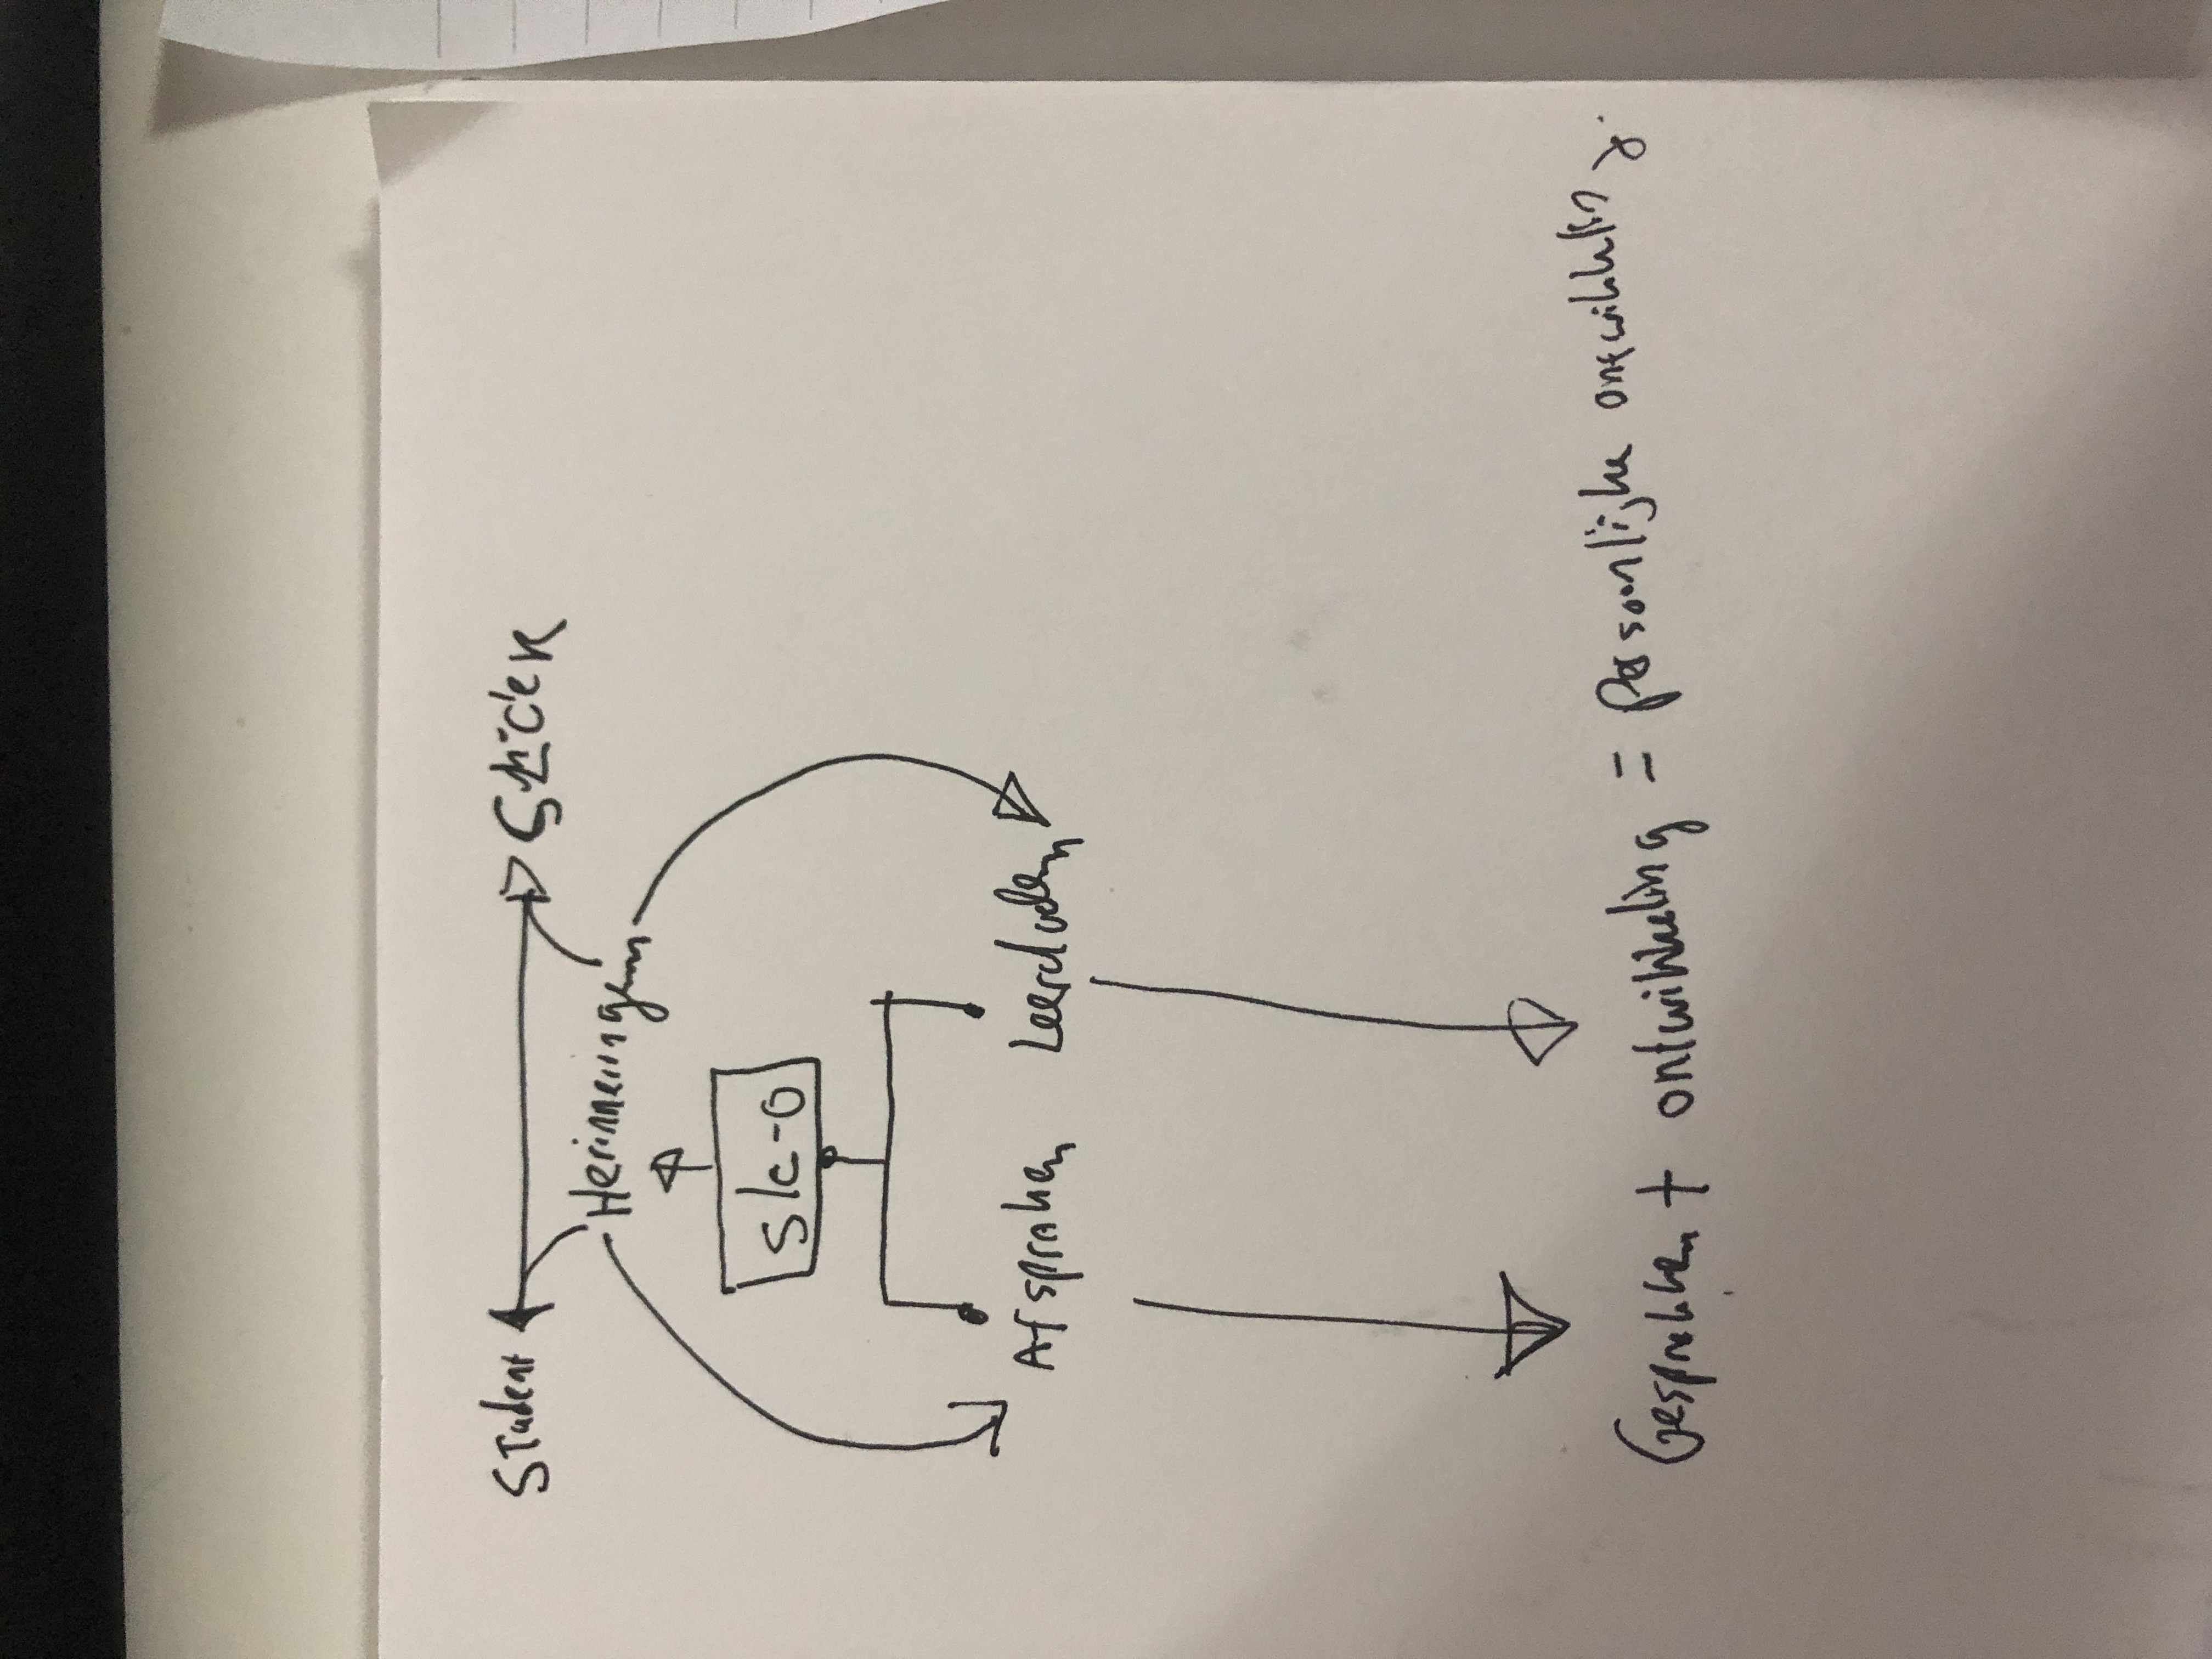 Student SLC'er
Herinneringen
slc-o
Afspraken Leerdoelen
Gesprekken + ontwikkeling = Persoonlijke ontwikkeling.